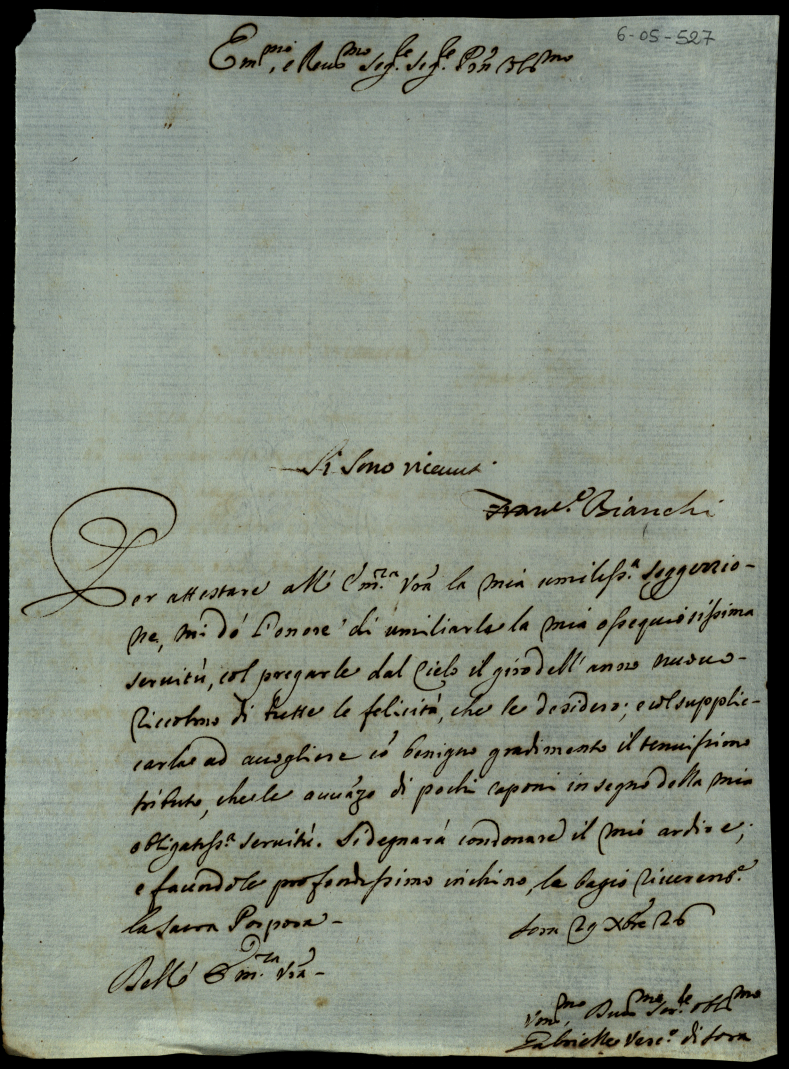 6-05-527
Em.mo, e Reu.mo Sig.re Sig.re P̃rñ Col.mo
Si sono riceuuti
Franc.o Bianchi
Per attestare all' Em.za Vrã la mia umiliss.a soggezzio-
ne, mi dò l'onore di umiliarle la mia ossequiosissima
seruitù, col pregarle dal Cielo il giro dell' anno nuouo
ricolmo di tutte le felicità, che le desidero; e col suppli-
carla ad accogliere cõ benigno gradimento il tenuissimo
tributo, che le auuãzo di pochi caponi in segno della mia
obligatiss.a seruitù. Si degnarà condonare il mio ardire;
e facendole profondissimo inchino, le bagio riuerens.e
la sacra Porpora-
Sora 29 Xbre 26
Dell' Em.za Vrã-
Vm̃o, Deu.mo Ser.re obl.mo
Gabrielle Vesc.o di Sora